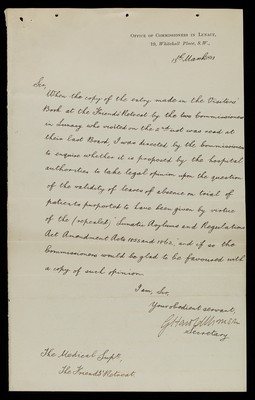 OFFICE OF COMMISSIONERS IN LUNACY,
19, Whitehall Place, S.W.,
Sir,
When the copy of the entry made in the Visitors'
Book at the Friends Retreat by the two Commissioners
in Lunacy who visited on the 2nd inst was read at
their last Board, I was directed by the Commissioners
to enquire whether it is proposed by the hospital
authorities to take legal opinion upon the question
of the validity of leaves of absence on trial of
patients purported to have been given by virtue
of the (repealed) "Lunatic Asylums and Regulations
Act Amendment Acts 1855 and 1862," and if so the
Commissioners would be glad to be favoured with
a copy of such opinion
I am, Sir,
Your obedient servant,
Secretary
The Medical Supt.
The Friends' Retreat